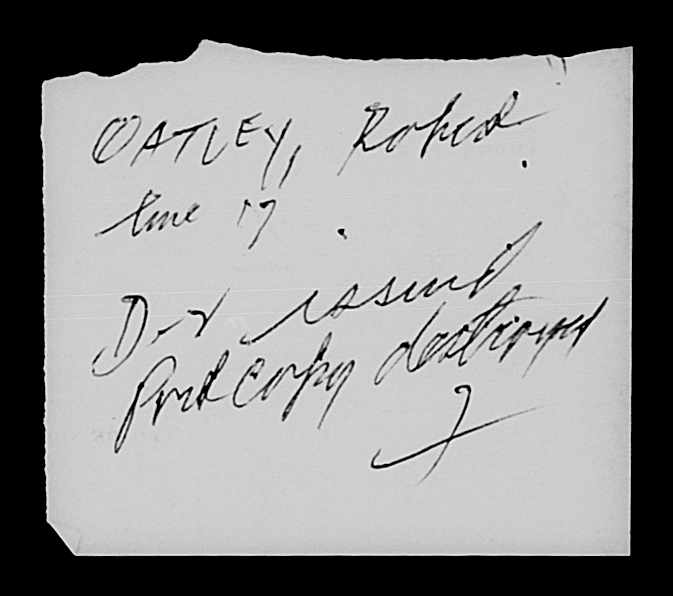 OATLEY, Robert
line 17.
issued
copy destroyed